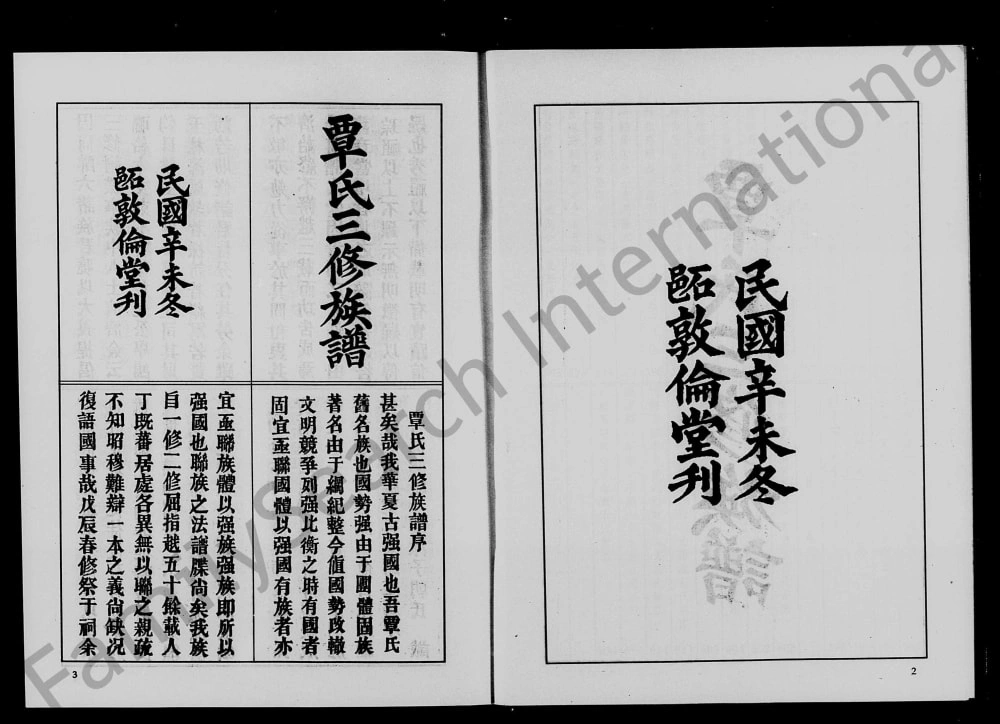 民國辛未冬
敦倫堂刊
2
覃氏三修族譜
民國辛未冬
敦倫堂刊
覃氏三修族譜序
甚矣哉我華夏古强國也吾覃氏
舊名族也國勢强由于團體固族
著名由于綱紀整今值國勢改轍
文明競爭列强比衡之時有國者
固宜亟聯國體以强國有族者亦
宜亟聯族體以强族强族即所以
强國也聯族之法譜牒尚矣我族
自一修二修屈指越五十餘載人
丁既蕃居處各異無以聯之親疏
不知昭穆難辯一本之義尙缺况
復語國事哉戊辰春修祭于祠余
3
FamilySearch International